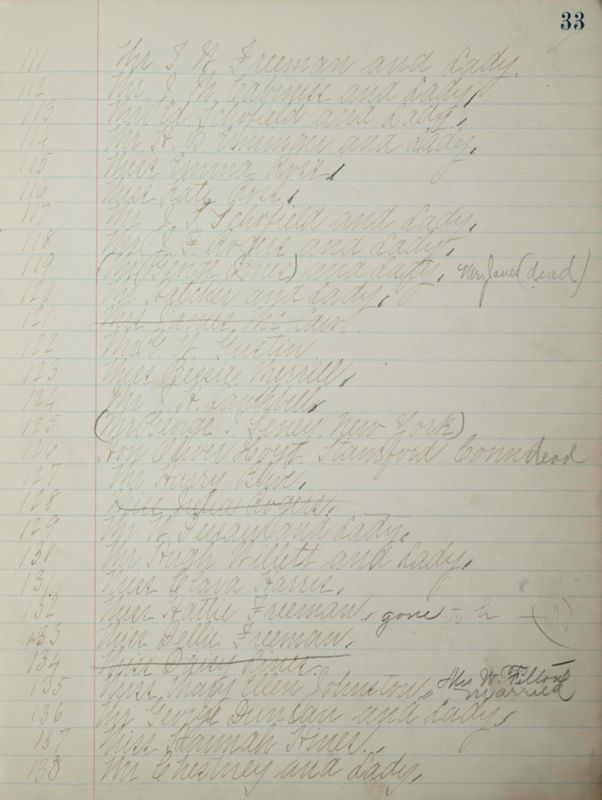 33
111 Mr I H Freeman and Lady.
112 Mr J M Cabiness and Lady,
113 Mr Schofield and Lady,
114 Mr H. B and Lady,
115 Miss Emma Ross,
116 Miss Kate Ross,
117 Mr J S Schofield and Lady,
118 Mr Rogers and Lady,
119 (Mr George Jones) and Lady, Mrs Jones (dead)
120 Mr Hatcher and Lady,
121 Miss Mc
122 Mr G. W. Gustin
123 Miss Bessie Merrill,
124 Mr H. Campbell,
125 (Mr George I. Seney. New York)
126 Hon Oliver Hoyt Stamford Conn dead
127 Mr Harry
128 Miss Julia Rogers,
129 Mr W. and Lady,
130 Mr Hugh Willett and Lady,
131 Miss Clara Harris,
132 Miss Hattie Freeman, gone to
133 Miss Freeman,
134 Miss
135 Miss Mary Ellen Johnston, Mrs W. Felton married
136 Mr George Duncan and Lady,
137 Miss Hannah Hines,
138 Mr Chestney and Lady,